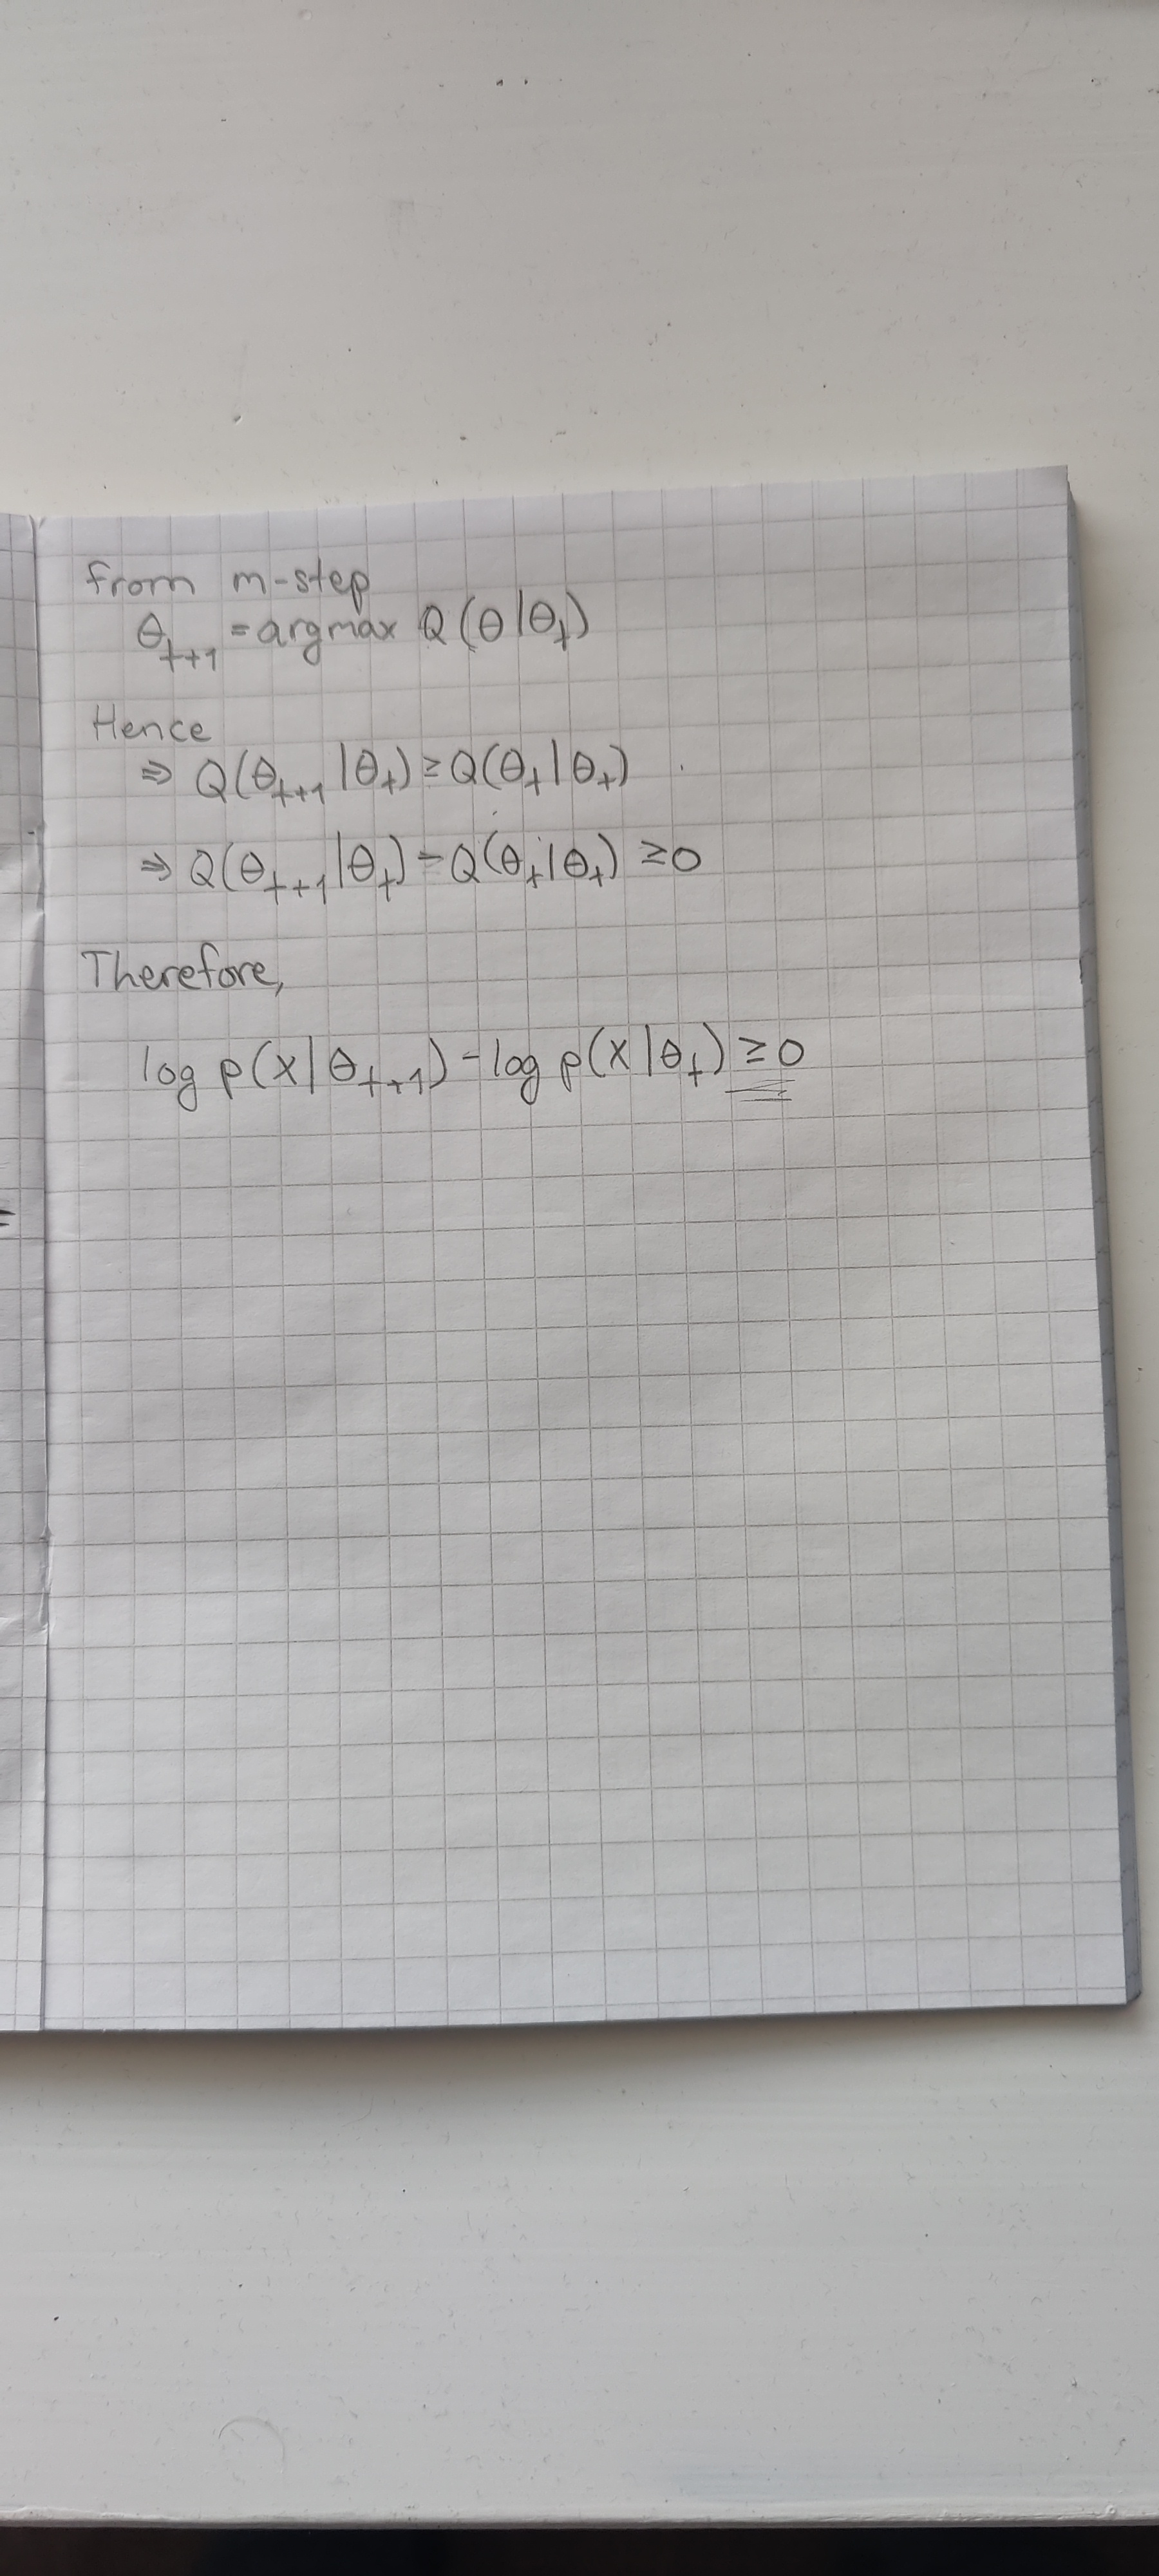 from m-step
θ_{t+1} = argmax Q(θ|θ_t)
Hence
⇒ Q(θ_{t+1}|θ_t) ≥ Q(θ_t|θ_t)
⇒ Q(θ_{t+1}|θ_t) - Q(θ_t|θ_t) ≥ 0
Therefore,
log p(x|θ_{t+1}) - log p(x|θ_t) ≥ 0